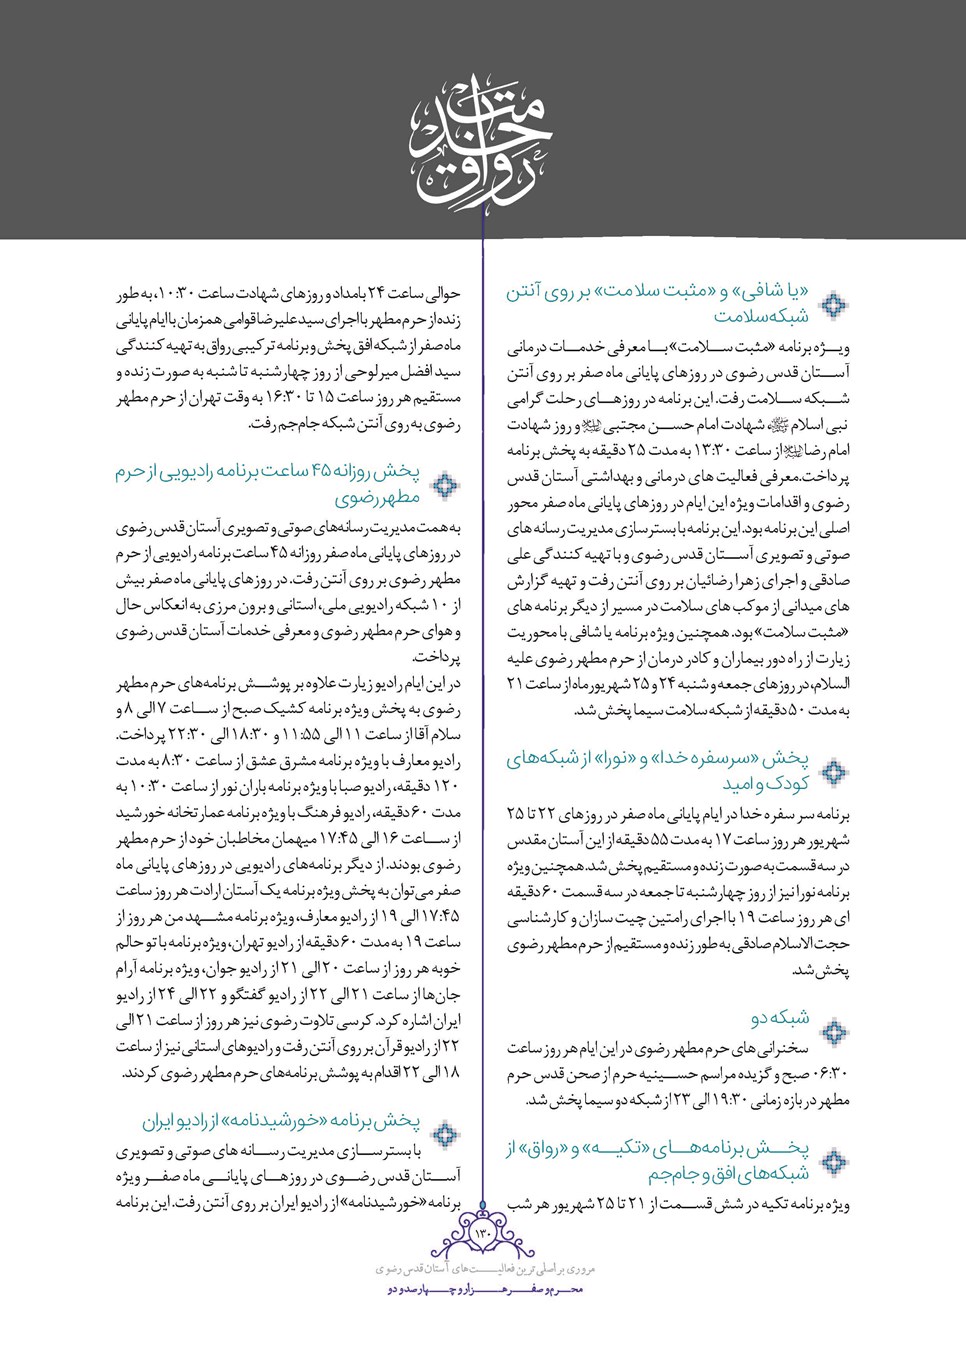 رواق خدمت
«یا شافی» و «مثبت سلامت» بر روی آنتن
شبکه‌سلامت
ویــژه برنامه «مثبت ســلامت» بــا معرفی خدمــات درمانی
آســتان قدس رضوی در روزهای پایانی ماه صفر بر روی آنتن
شــبکه ســلامت رفت. این برنامه در روزهــای رحلت گرامی
نبی اسلام ﷺ، شهادت امام حســن مجتبی علیه‌السلام و روز شهادت
امام رضا علیه‌السلام از ساعت ۱۳:۳۰ به مدت ۲۵ دقیقه به پخش برنامه
پرداخت.معرفی فعالیت های درمانی و بهداشتی آستان قدس
رضوی و اقدامات ویژه این ایام در روزهای پایانی ماه صفر محور
اصلی این برنامه بود. این برنامه با بسترسازی مدیریت رسانه های
صوتی و تصویری آســتان قدس رضوی و با تهیه کنندگی علی
صادقی و اجرای زهرا رضائیان بر روی آنتن رفت و تهیه گزارش
های میدانی از موکب های سلامت در مسیر از دیگر برنامه های
«مثبت سلامت» بود. همچنین ویژه برنامه یا شافی با محوریت
زیارت از راه دور بیماران و کادر درمان از حرم مطهر رضوی علیه
السلام، در روزهای جمعه و شنبه ۲۴ و ۲۵ شهریورماه از ساعت ۲۱
به مدت ۵۰ دقیقه از شبکه سلامت سیما پخش شد.
پخش «سرسفره خدا» و «نورا» از شبکه‌های
کودک و امید
برنامه سر سفره خدا در ایام پایانی ماه صفر در روزهای ۲۲ تا ۲۵
شهریور هر روز ساعت ۱۷ به مدت ۵۵ دقیقه از این آستان مقدس
در سه قسمت به صورت زنده و مستقیم پخش شد. همچنین ویژه
برنامه نورا نیز از روز چهارشنبه تا جمعه در سه قسمت ۶۰ دقیقه
ای هر روز ساعت ۱۹ با اجرای رامتین چیت سازان و کارشناسی
حجت الاسلام صادقی به طور زنده و مستقیم از حرم مطهر رضوی
پخش شد.
شبکه دو
سخنرانی های حرم مطهر رضوی در این ایام هر روز ساعت
۰۶:۳۰ صبح و گزیده مراسم حســینیه حرم از صحن قدس حرم
مطهر در بازه زمانی ۱۹:۳۰ الی ۲۳ از شبکه دو سیما پخش شد.
پخــش برنامه‌هــای «تکیــه» و «رواق» از
شبکه‌های افق و جام‌جم
ویژه برنامه تکیه در شش قســمت از ۲۱ تا ۲۵ شهریور هر شب
حوالی ساعت ۲۴ بامداد و روزهای شهادت ساعت ۱۰:۳۰، به طور
زنده از حرم مطهر با اجرای سید علیرضا قوامی همزمان با ایام پایانی
ماه صفر از شبکه افق پخش و برنامه ترکیبی رواق به تهیه کنندگی
سید افضل میرلوحی از روز چهارشنبه تا شنبه به صورت زنده و
مستقیم هر روز ساعت ۱۵ تا ۱۶:۳۰ به وقت تهران از حرم مطهر
رضوی به روی آنتن شبکه جام‌جم رفت.
پخش روزانه ۴۵ ساعت برنامه رادیویی از حرم
مطهر رضوی
به همت مدیریت رسانه‌های صوتی و تصویری آستان قدس رضوی
در روزهای پایانی ماه صفر روزانه ۴۵ ساعت برنامه رادیویی از حرم
مطهر رضوی بر روی آنتن رفت. در روزهای پایانی ماه صفر بیش
از ۱۰ شبکه رادیویی ملی، استانی و برون مرزی به انعکاس حال
و هوای حرم مطهر رضوی و معرفی خدمات آستان قدس رضوی
پرداخت.
در این ایام رادیو زیارت علاوه بر پوشــش برنامه‌های حرم مطهر
رضوی به پخش ویژه برنامه کشیک صبح از ســاعت ۷ الی ۸ و
سلام آقا از ساعت ۱۱ الی ۱۱:۵۵ و ۱۸:۳۰ الی ۲۲:۳۰ پرداخت.
رادیو معارف با ویژه برنامه مشرق عشق از ساعت ۸:۳۰ به مدت
۱۲۰ دقیقه، رادیو صبا با ویژه برنامه باران نور از ساعت ۱۰:۳۰ به
مدت ۶۰ دقیقه، رادیو فرهنگ با ویژه برنامه عمارتخانه خورشید
از ســاعت ۱۶ الی ۱۷:۴۵ میهمان مخاطبان خود از حرم مطهر
رضوی بودند. از دیگر برنامه‌های رادیویی در روزهای پایانی ماه
صفر می‌توان به پخش ویژه برنامه یک آستان ارادت هر روز ساعت
۱۷:۴۵ الی ۱۹ از رادیو معارف، ویژه برنامه مشــهد من هر روز از
ساعت ۱۹ به مدت ۶۰ دقیقه از رادیو تهران، ویژه برنامه با تو حالم
خوبه هر روز از ساعت ۲۰ الی ۲۱ از رادیو جوان، ویژه برنامه آرام
جان‌ها از ساعت ۲۱ الی ۲۲ از رادیو گفتگو و ۲۲ الی ۲۴ از رادیو
ایران اشاره کرد. کرسی تلاوت رضوی نیز هر روز از ساعت ۲۱ الی
۲۲ از رادیو قرآن بر روی آنتن رفت و رادیوهای استانی نیز از ساعت
۱۸ الی ۲۲ اقدام به پوشش برنامه‌های حرم مطهر رضوی کردند.
پخش برنامه «خورشیدنامه» از رادیو ایران
با بسترســازی مدیریت رســانه های صوتی و تصویری
آســتان قدس رضــوی در روزهــای پایانــی ماه صفــر ویژه
برنامه «خورشیدنامه» از رادیو ایران بر روی آنتن رفت. این برنامه
۱۳۰
مروری بر اصلی ترین فعالیــت‌های آستان قدس رضوی
محــرم و صفــر هــزار و چــهارصد و دو